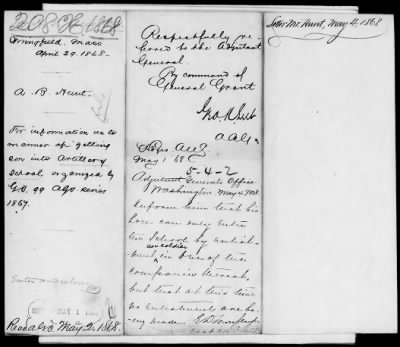 208 1868
Springfield, Mass
April 29. 1868-
A. B. Hunt.
For information as to
manner of getting
son into Artillery
School organized by
G.O. 99 AGO series
1867.
Recd AGO May 2, 1868
Respectfully re-
ferred to the Adjutant
General.
By command of
General Grant
Geo. K. Leet
A.A.G.
May 1 68
5-4-2
Adjutant General's Office
Washington May 4, 1868.
Inform him that his
son can only enter
the School by enlist-
as soldier
ment in one of the
companies thereat,
but that at this time
no enlistments are be-
ing made.
Letter Mr. Hunt, May 4, 1868